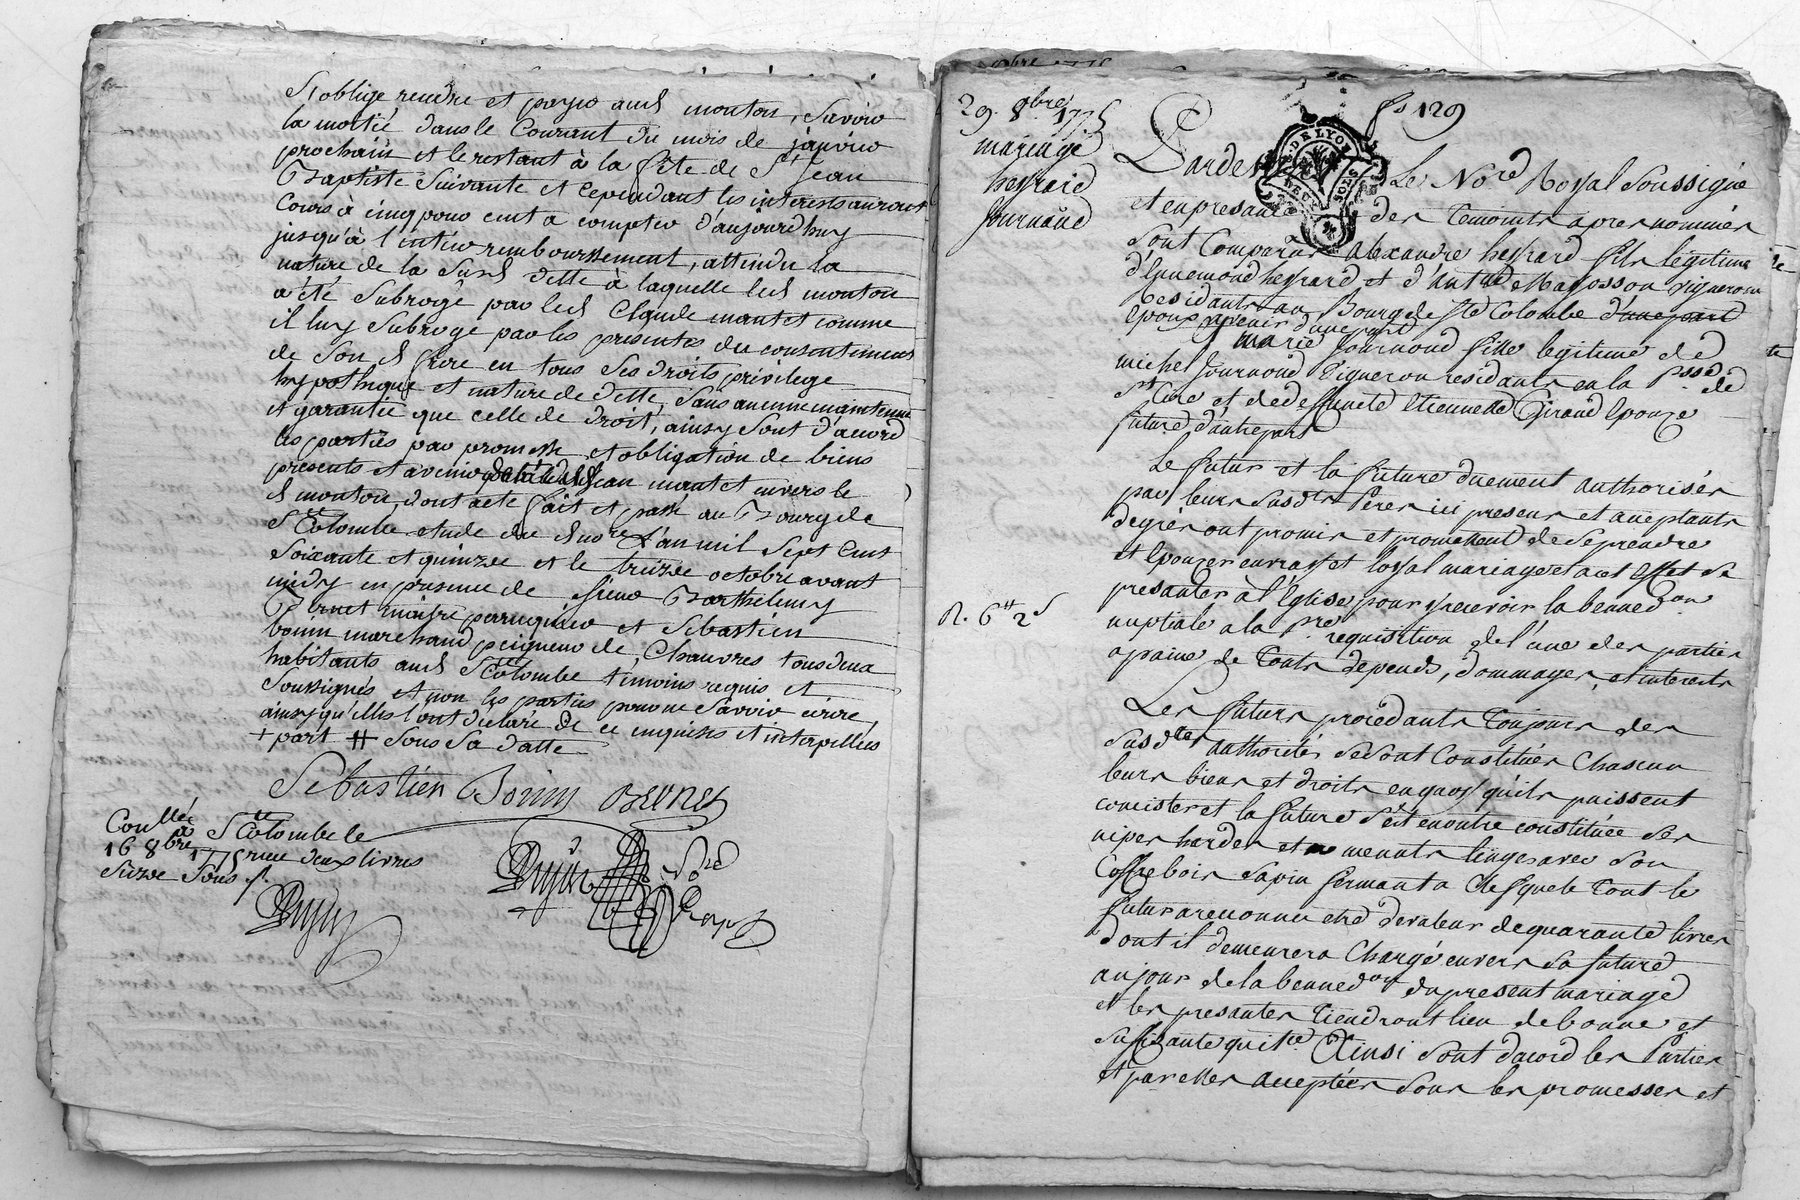 s'oblige rendre et payer aud mouton, Savoir
la moitié dans le Courant du mois de janvier
prochain et le restant à la fête de St Jean
Baptiste Suivante et Cependant les interests auront
Cours à cinq pour cent a compter d'aujourdhuy
jusqu'à l'entier remboursement, attendu la
nature de la Susd dette à laquelle led mouton
a été Subrogé par led Claude mantet comme
il luy Subroge par les presentes du consentement
de Son d frere en tous Ses droits privilege
hypotheque et nature de dette, Sans aucune maintenue
et garantie que celle de droit, ainsy Sont d'acord
les parties par promesse et obligation de biens
presents et avenir mantet envers le
d mouton, dont acte fait et passé au Bourg de
Ste Colombe etude du d nore L'an mil Sept Cent
Soixante et quinze et le treize octobre avant
midy en presence de Sieur Barthelemy
Bernet maitre perruquier et Sebastien
bonin marchand peigneur de Chanvres tous deux
habitants aud Ste Colombe temoins requis et
Soussignés et non les parties pour ne Savoir écrire,
ainsy qu'elles l'ont declaré de ce enquises et interpellées
+ part # Sous Sa datte
Sebastien Bonin Bernet
Conllé à Ste Colombe le
16 8bre 1775 reçu deux livres
Seize Sous
29. 8bre 1775
mariage
heyraud
Journoud
R. 6# 2s
fo 129
DE LYON
Pardevant Le Nore Royal Soussigné
et en presance des Temoints apres nommés
Sont Comparus alexandre heyrard fils légitime
d'Ennemond heyrard et d'Antte Magosson vigneron
Residants au Bourg de Ste Colombe d'une part
époux avenir d'une part
& marie Journoud fille legitime de
michel Journoud Vigneron residants en la Psse de
St Cire et de deffuncte Etiennette Giraud Epouze
future d'autre part
Le futur et la future duement authorisés
par leurs susdts Peres ici presens et acceptants
degrés ont promis et promettent de Se prendre
et Epouzer en vray et loyal mariage et a cet Effet se
presanter à l'Eglise pour y recevoir la benedon
nuptiale a la Pre requisition de l'une des parties
a paine de Touts depends, dommages, et interests
Les futurs procedants Toujours des
susdtes authorités Se Sont Constitués Chascun
leurs biens et droits en quoy qu'ils puissent
concister et la future S'est en outre constituée Ses
nipes hardes et menuts linges avec Son
Coffre bois Sapin fermant a Clef que le Tout le
futur a reconnu etre de valeur de quarante livres
dont il demeurera Chargé envers Sa future
au jour de la benedon du present mariage
et les presantes Tiendront lieu de bonne et
suffisante quitte. Ainsi Sont d'acord les Parties
et par elles acceptées Sous les promesses et